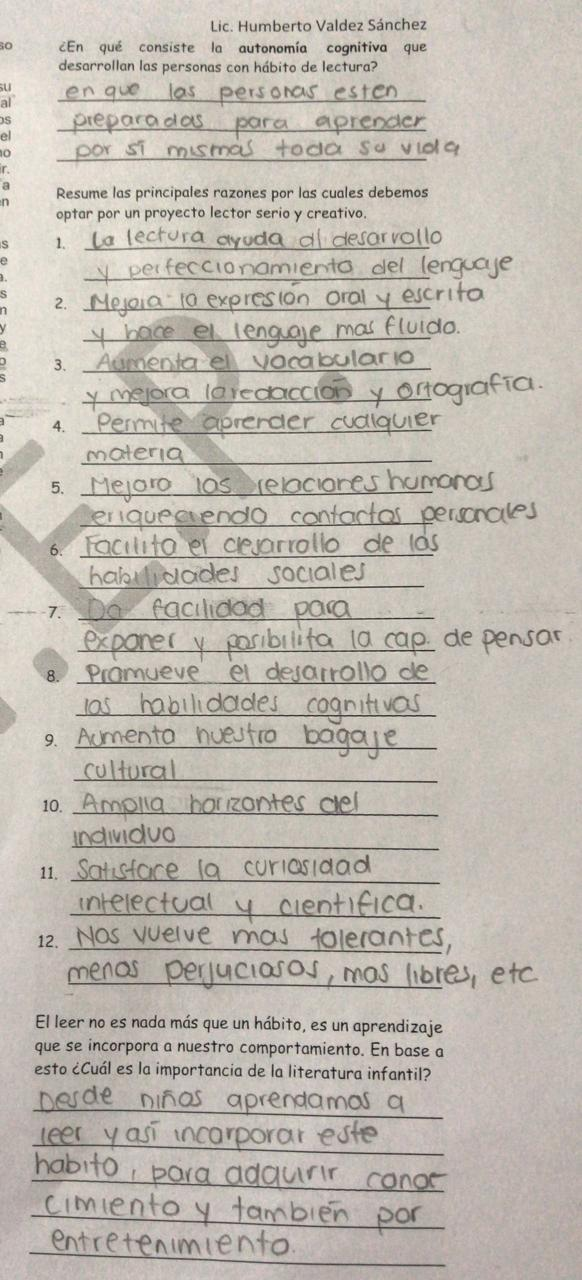 Lic. Humberto Valdez Sánchez
¿En qué consiste la autonomía cognitiva que
desarrollan las personas con hábito de lectura?
en que las personas esten
preparadas para aprender
por si mismas toda su vida
Resume las principales razones por las cuales debemos
optar por un proyecto lector serio y creativo.
1. La lectura ayuda al desarrollo
y perfeccionamiento del lenguaje
2. Mejora la expresión oral y escrita
y hace el lenguaje mas fluido.
3. Aumenta el vocabulario
y mejora la redacción y ortografía.
4. Permite aprender cualquier
materia
5. Mejora las relaciones humanas
eriqueciendo contactos personales
6. Facilita el desarrollo de las
habilidades sociales
7. Da facilidad para
exponer y posibilita la cap. de pensar
8. Promueve el desarrollo de
las habilidades cognitivas
9. Aumenta nuestro bagaje
cultural
10. Amplia horizontes del
individuo
11. Satisface la curiosidad
intelectual y cientifica.
12. Nos vuelve mas tolerantes,
menos perjuciosos, mas libres, etc
El leer no es nada más que un hábito, es un aprendizaje
que se incorpora a nuestro comportamiento. En base a
esto ¿Cuál es la importancia de la literatura infantil?
Desde niños aprendamos a
leer y así incorporar este
habito, para adquirir conor
cimiento y también por
entretenimiento.